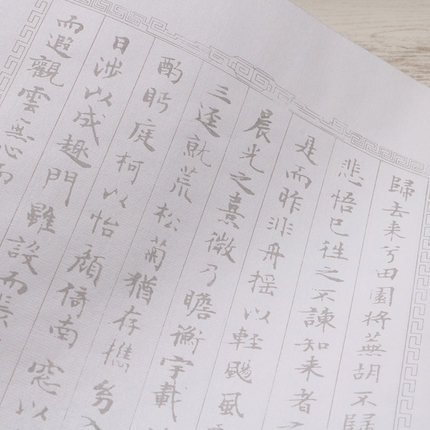 歸去來兮田園將蕪胡不歸
悲悟已往之不諫知來者
是而昨非舟搖以輕颺風
晨光之熹微乃瞻衡宇載
三逕就荒松菊猶存攜幼入
酌眄庭柯以怡顏倚南窓以
日涉以成趣門雖設而長
而遐觀雲無心而